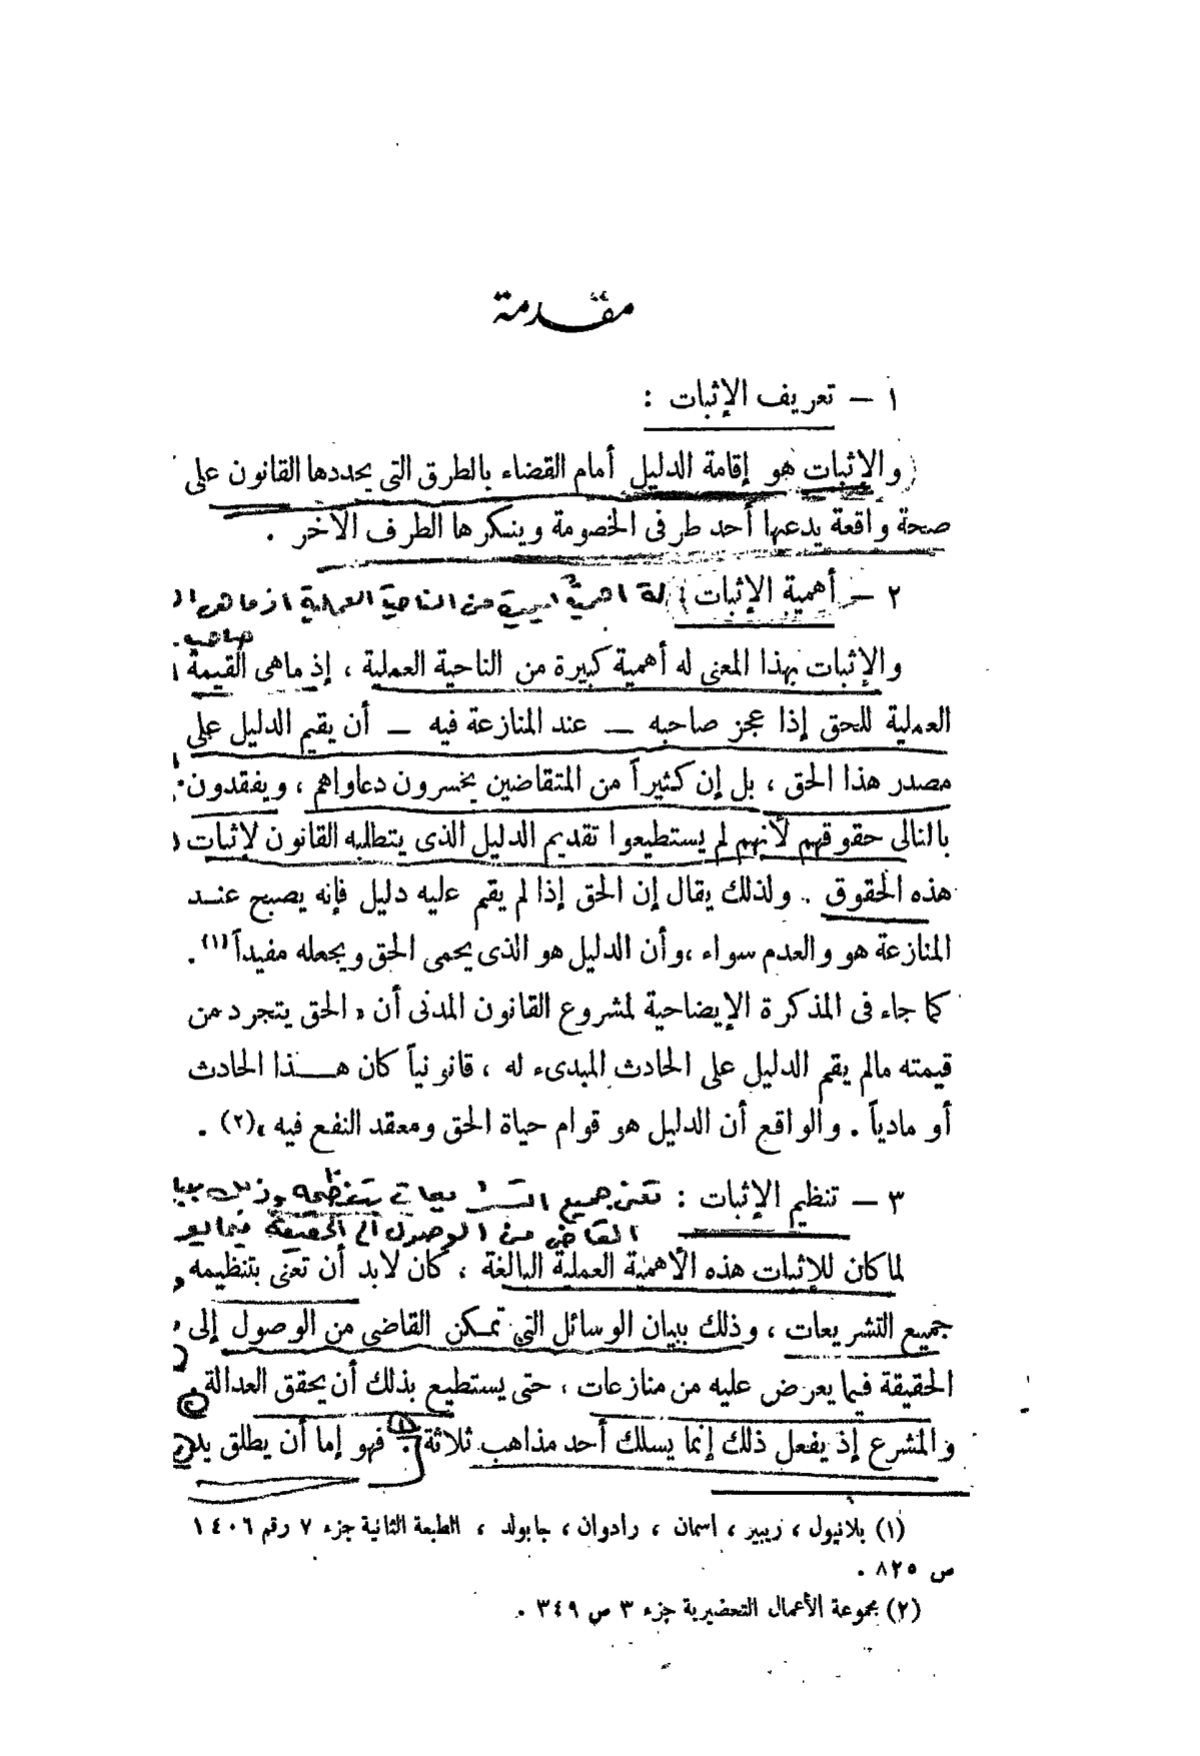 مقدمة
١ — تعريف الإثبات :
والإثبات هو إقامة الدليل أمام القضاء بالطرق التى يحددها القانون على
صحة واقعة يدعيها أحد طرفى الخصومة وينكرها الطرف الآخر .
٢ — أهمية الإثبات : له اهمية كبيرة من الناحية العملية اذ ما هى
صاحبه
والإثبات بهذا المعنى له أهمية كبيرة من الناحية العملية ، إذ ماهى القيمة
العملية للحق إذا عجز صاحبه — عند المنازعة فيه — أن يقيم الدليل على
مصدر هذا الحق ، بل إن كثيراً من المتقاضين يخسرون دعاواهم ، ويفقدون
بالتالى حقوقهم لأنهم لم يستطيعوا تقديم الدليل الذى يتطلبه القانون لإثبات
هذه الحقوق . ولذلك يقال إن الحق إذا لم يقم عليه دليل فإنه يصبح عنـد
المنازعة هو والعدم سواء ، وأن الدليل هو الذى يحمى الحق ويجعله مفيداً (١) .
كما جاء فى المذكرة الإيضاحية لمشروع القانون المدنى أن « الحق يتجرد من
قيمته مالم يقم الدليل على الحادث المبدىء له ، قانونياً كان هـــذا الحادث
أو مادياً . والواقع أن الدليل هو قوام حياة الحق ومعقد النفع فيه »(٢) .
٣ — تنظيم الإثبات : تعنى جميع التشريعات بتنظيمه وذلك
القاضى من الوصول الى الحقيقة فيما
لما كان للإثبات هذه الأهمية العملية البالغة ، كان لابد أن تعنى بتنظيمه
جميع التشريعات ، وذلك ببيان الوسائل التى تمـكن القاضى من الوصول إلى
الحقيقة فيما يعرض عليه من منازعات ، حتى يستطيع بذلك أن يحقق العدالة .
والمشرع إذ يفعل ذلك إنما يسلك أحد مذاهب ثلاثة : فهو إما أن يطلق يد
(١) بلانيول ، ريبير ، اسمان ، رادوان ، جابولد ، الطبعة الثانية جزء ٧ رقم ١٤٠٦
ص ٨٢٥ .
(٢) مجموعة الأعمال التحضيرية جزء ٣ ص ٣٤٩ .